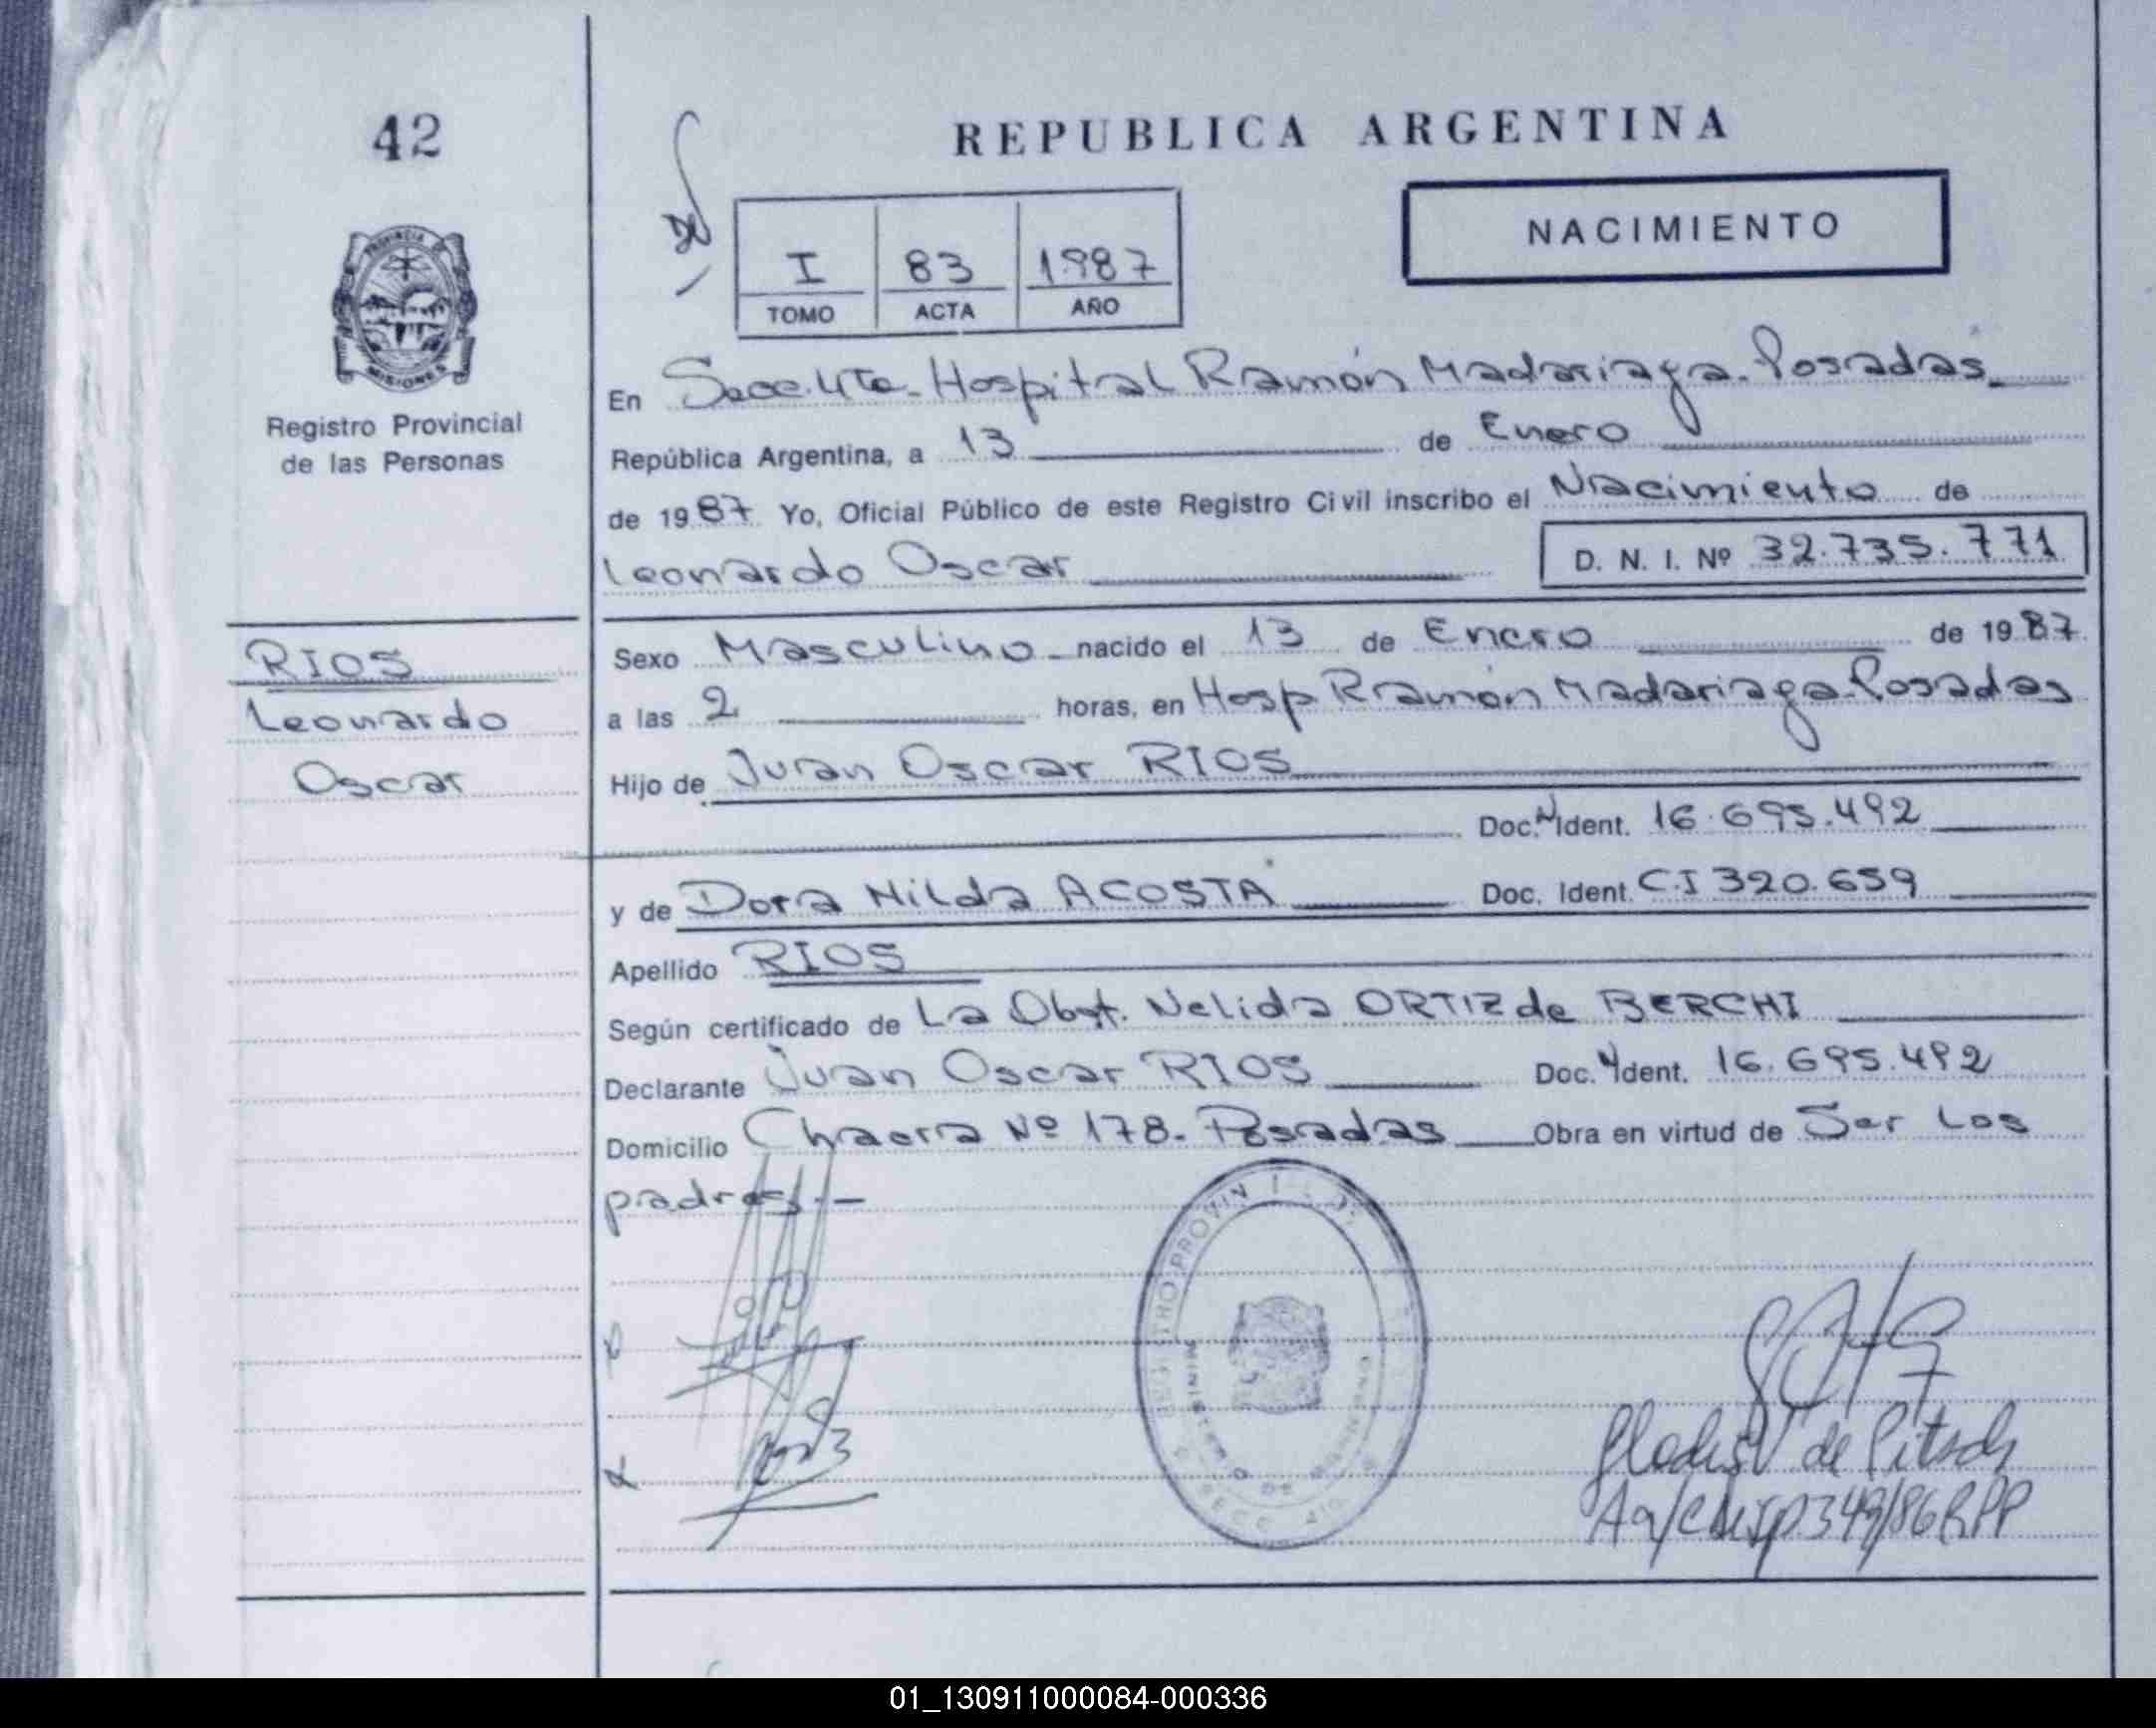 42
REPUBLICA ARGENTINA
NACIMIENTO
I 83 1987
TOMO ACTA AÑO
PROVINCIA
MISIONES
Registro Provincial
de las Personas
En Secc. 4ta. Hospital Ramón Madariaga. Posadas.
República Argentina, a 13 de Enero
de 1987 Yo, Oficial Público de este Registro Civil inscribo el Nacimiento de
Leonardo Oscar D. N. I. Nº 32.735.771
RIOS
Leonardo
Oscar
Sexo Masculino nacido el 13 de Enero de 1987
a las 2 horas, en Hosp Ramón Madariaga. Posadas
Hijo de Juan Oscar RIOS
Doc. N Ident. 16.695.492
y de Dora Nilda ACOSTA Doc. Ident. C.I 320.659
Apellido RIOS
Según certificado de La Obst. Nelida ORTIZ de BERCHI
Declarante Juan Oscar RIOS Doc. N Ident. 16.695.492
Domicilio Chacra Nº 178. Posadas Obra en virtud de Ser los
padres.-
REGISTRO PROVIN
MINISTERIO DE
SECC
Gladis V de Pitsch
349/86 RPP
01_130911000084-000336